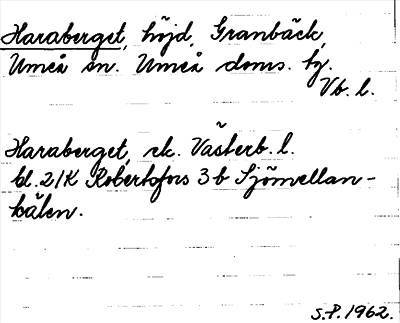 Haraberget, höjd, Granbäck,
Umeå sn. Umeå doms. hg.
Vb. l.
Haraberget, ek. Västerb. l.
bl. 21K Robertsfors 3b Sjömellan-
kålen.
S.P. 1962.